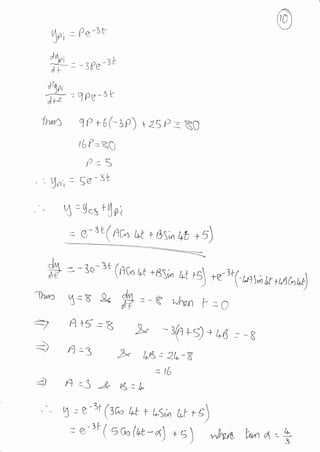 10
y_pi = Pe^-3t
dy_pi/dt = -3Pe^-3t
d²y_pi/dt² = 9Pe^-3t
Thus 9P + 6(-3P) + 25P = 80
16P = 80
P = 5
∴ y_pi = 5e^-3t
∴ y = y_cs + y_pi
= e^-3t (A Cos 4t + B Sin 4t + 5)
dy/dt = -3e^-3t (A Cos 4t + B Sin 4t + 5) + e^-3t (-4A Sin 4t + 4B Cos 4t)
Thus y = 8 & dy/dt = -8 when t = 0
⇒ A + 5 = 8 & -3(A + 5) + 4B = -8
⇒ A = 3 & 4B = 24 - 8
= 16
⇒ A = 3 & B = 4
∴ y = e^-3t (3 Cos 4t + 4 Sin 4t + 5)
= e^-3t (5 Cos (4t - α) + 5) where tan α = 4/3